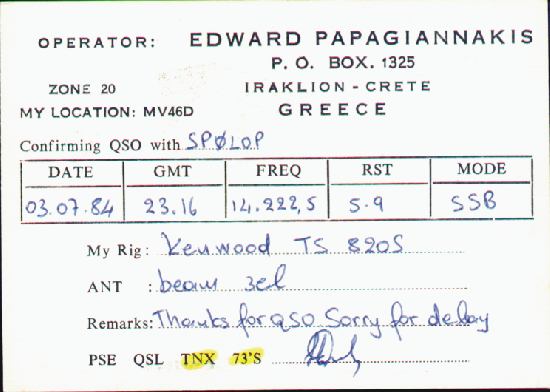 OPERATOR: EDWARD PAPAGIANNAKIS
P. O. BOX. 1325
ZONE 20 IRAKLION - CRETE
MY LOCATION: MV46D GREECE
Confirming QSO with SPØLOP
DATE GMT FREQ RST MODE
03.07.84 23.16 14.222,5 5.9 SSB
My Rig: Kenwood TS 820S
ANT : beam 3el
Remarks: Thanks for QSO Sorry for delay
PSE QSL TNX 73'S